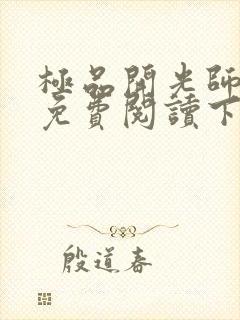 極品開光師
免費閱讀下
殷道春